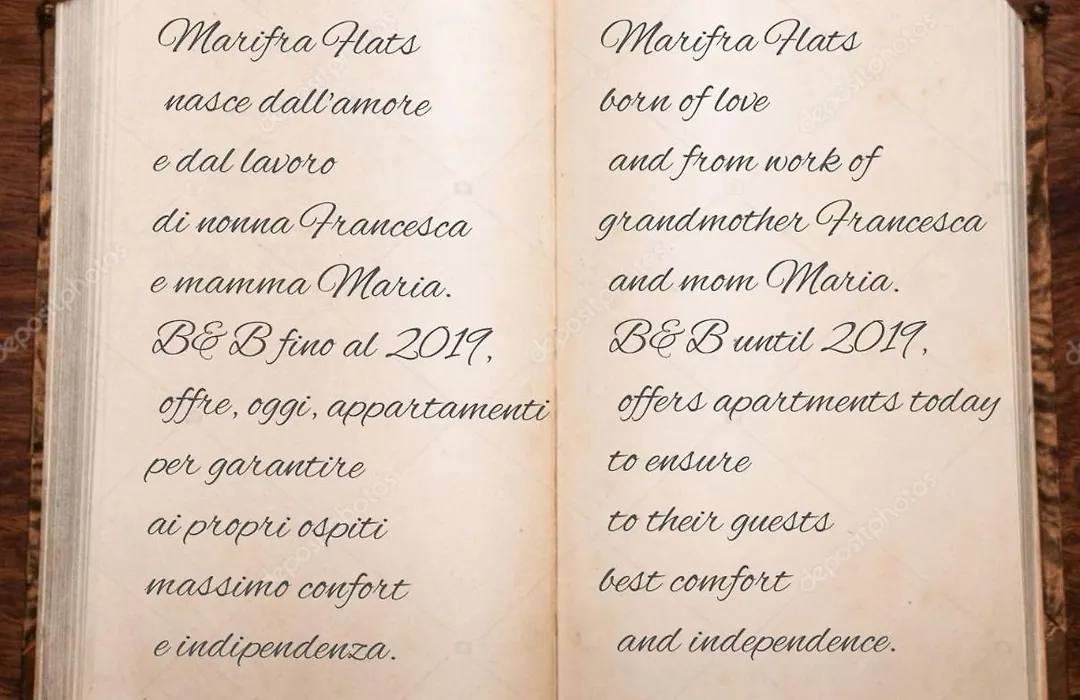 Marifra Flats
nasce dall'amore
e dal lavoro
di nonna Francesca
e mamma Maria.
B&B fino al 2019,
offre, oggi, appartamenti
per garantire
ai propri ospiti
massimo confort
e indipendenza.
Marifra Flats
born of love
and from work of
grandmother Francesca
and mom Maria.
B&B until 2019,
offers apartments today
to ensure
to their guests
best comfort
and independence.
depositphotos
depositphotos
depositphotos
depositphotos
depositphotos
depositphotos
depositphotos